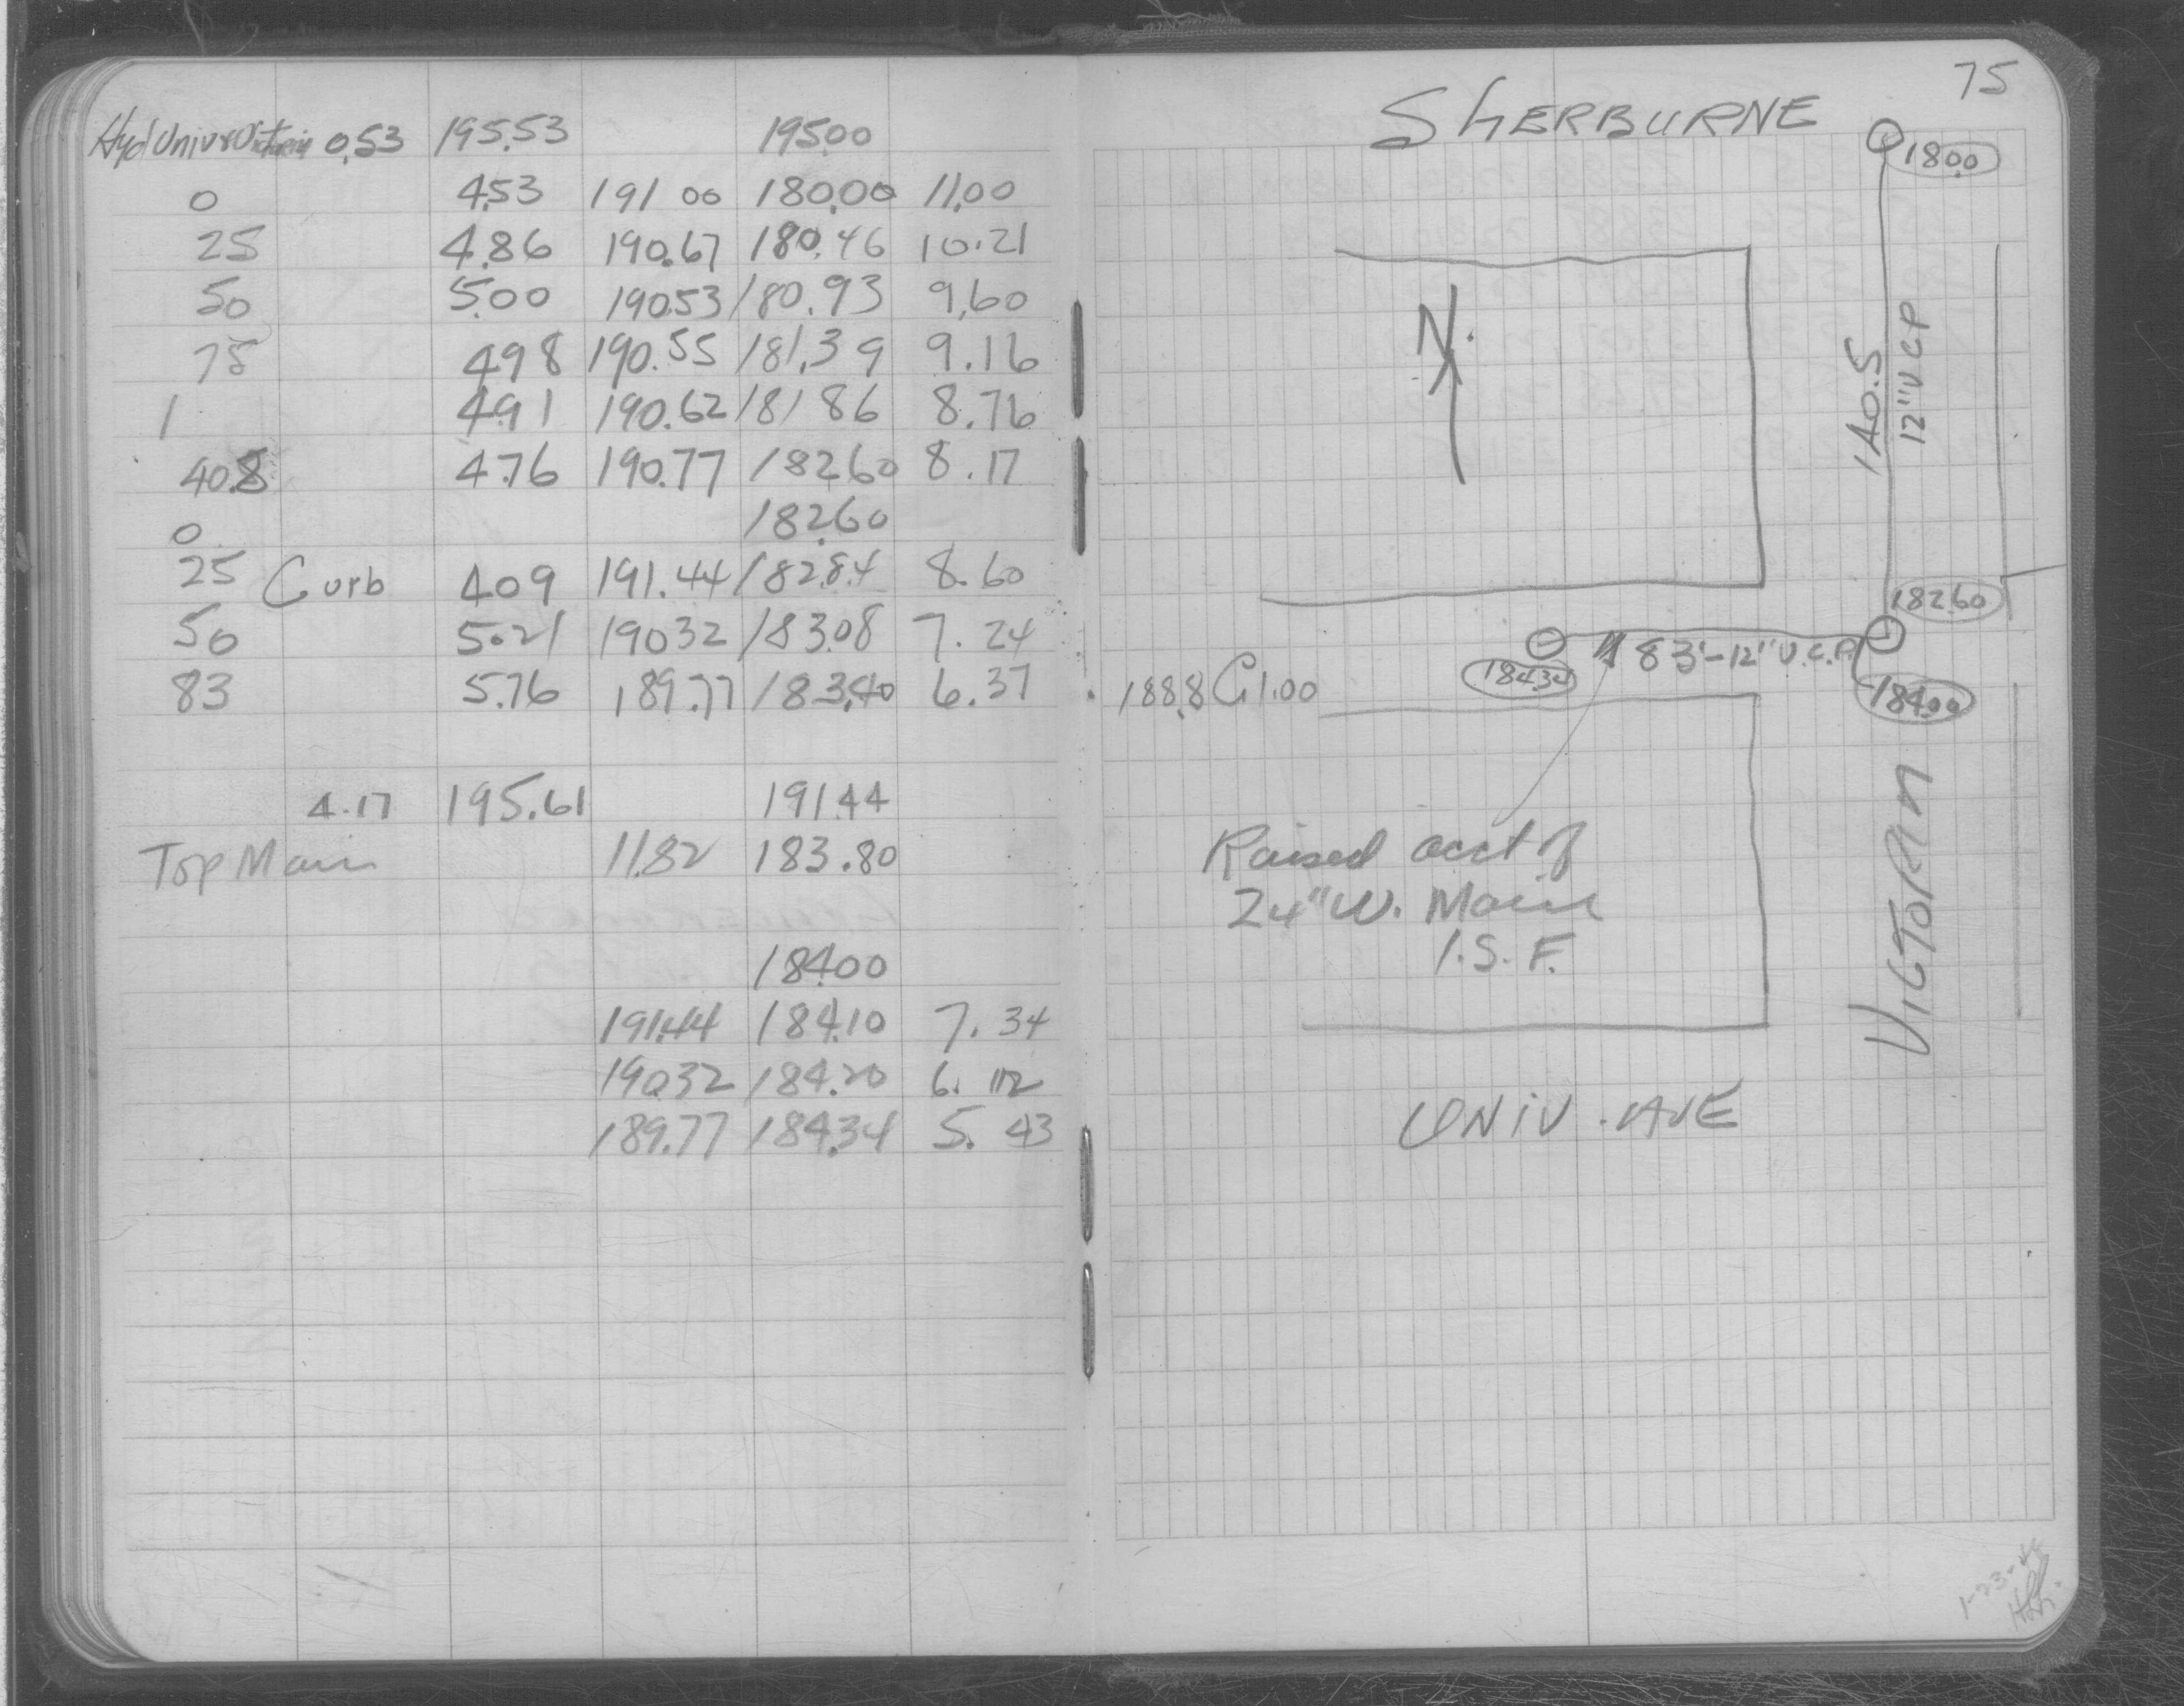 Hyd Univ & Victoria 0.53 195.53 195.00
0 4.53 191 00 180.00 11.00
25 4.86 190.67 180.46 10.21
50 5.00 190.53 180.93 9.60
75 4.98 190.55 181.39 9.16
1 4.91 190.62 181 86 8.76
40.8 4.76 190.77 182 60 8.17
0 182.60
25 Curb 4.09 191.44 182.84 8.60
50 5.21 190 32 183.08 7.24
83 5.76 189.77 183.40 6.37
4.17 195.61 191.44
Top Main 11.82 183.80
184.00
191.44 184.10 7.34
190.32 184.20 6.12
189.77 184.34 5.43
75
SHERBURNE
180.0
N.
140.5
12" V.C.P
182.60
83'-12" V.C.P.
184.34
188.8 C 1.00
184.00
Raised acct of
24" W. Main
1.S.F.
VICTORIA
UNIV. AVE